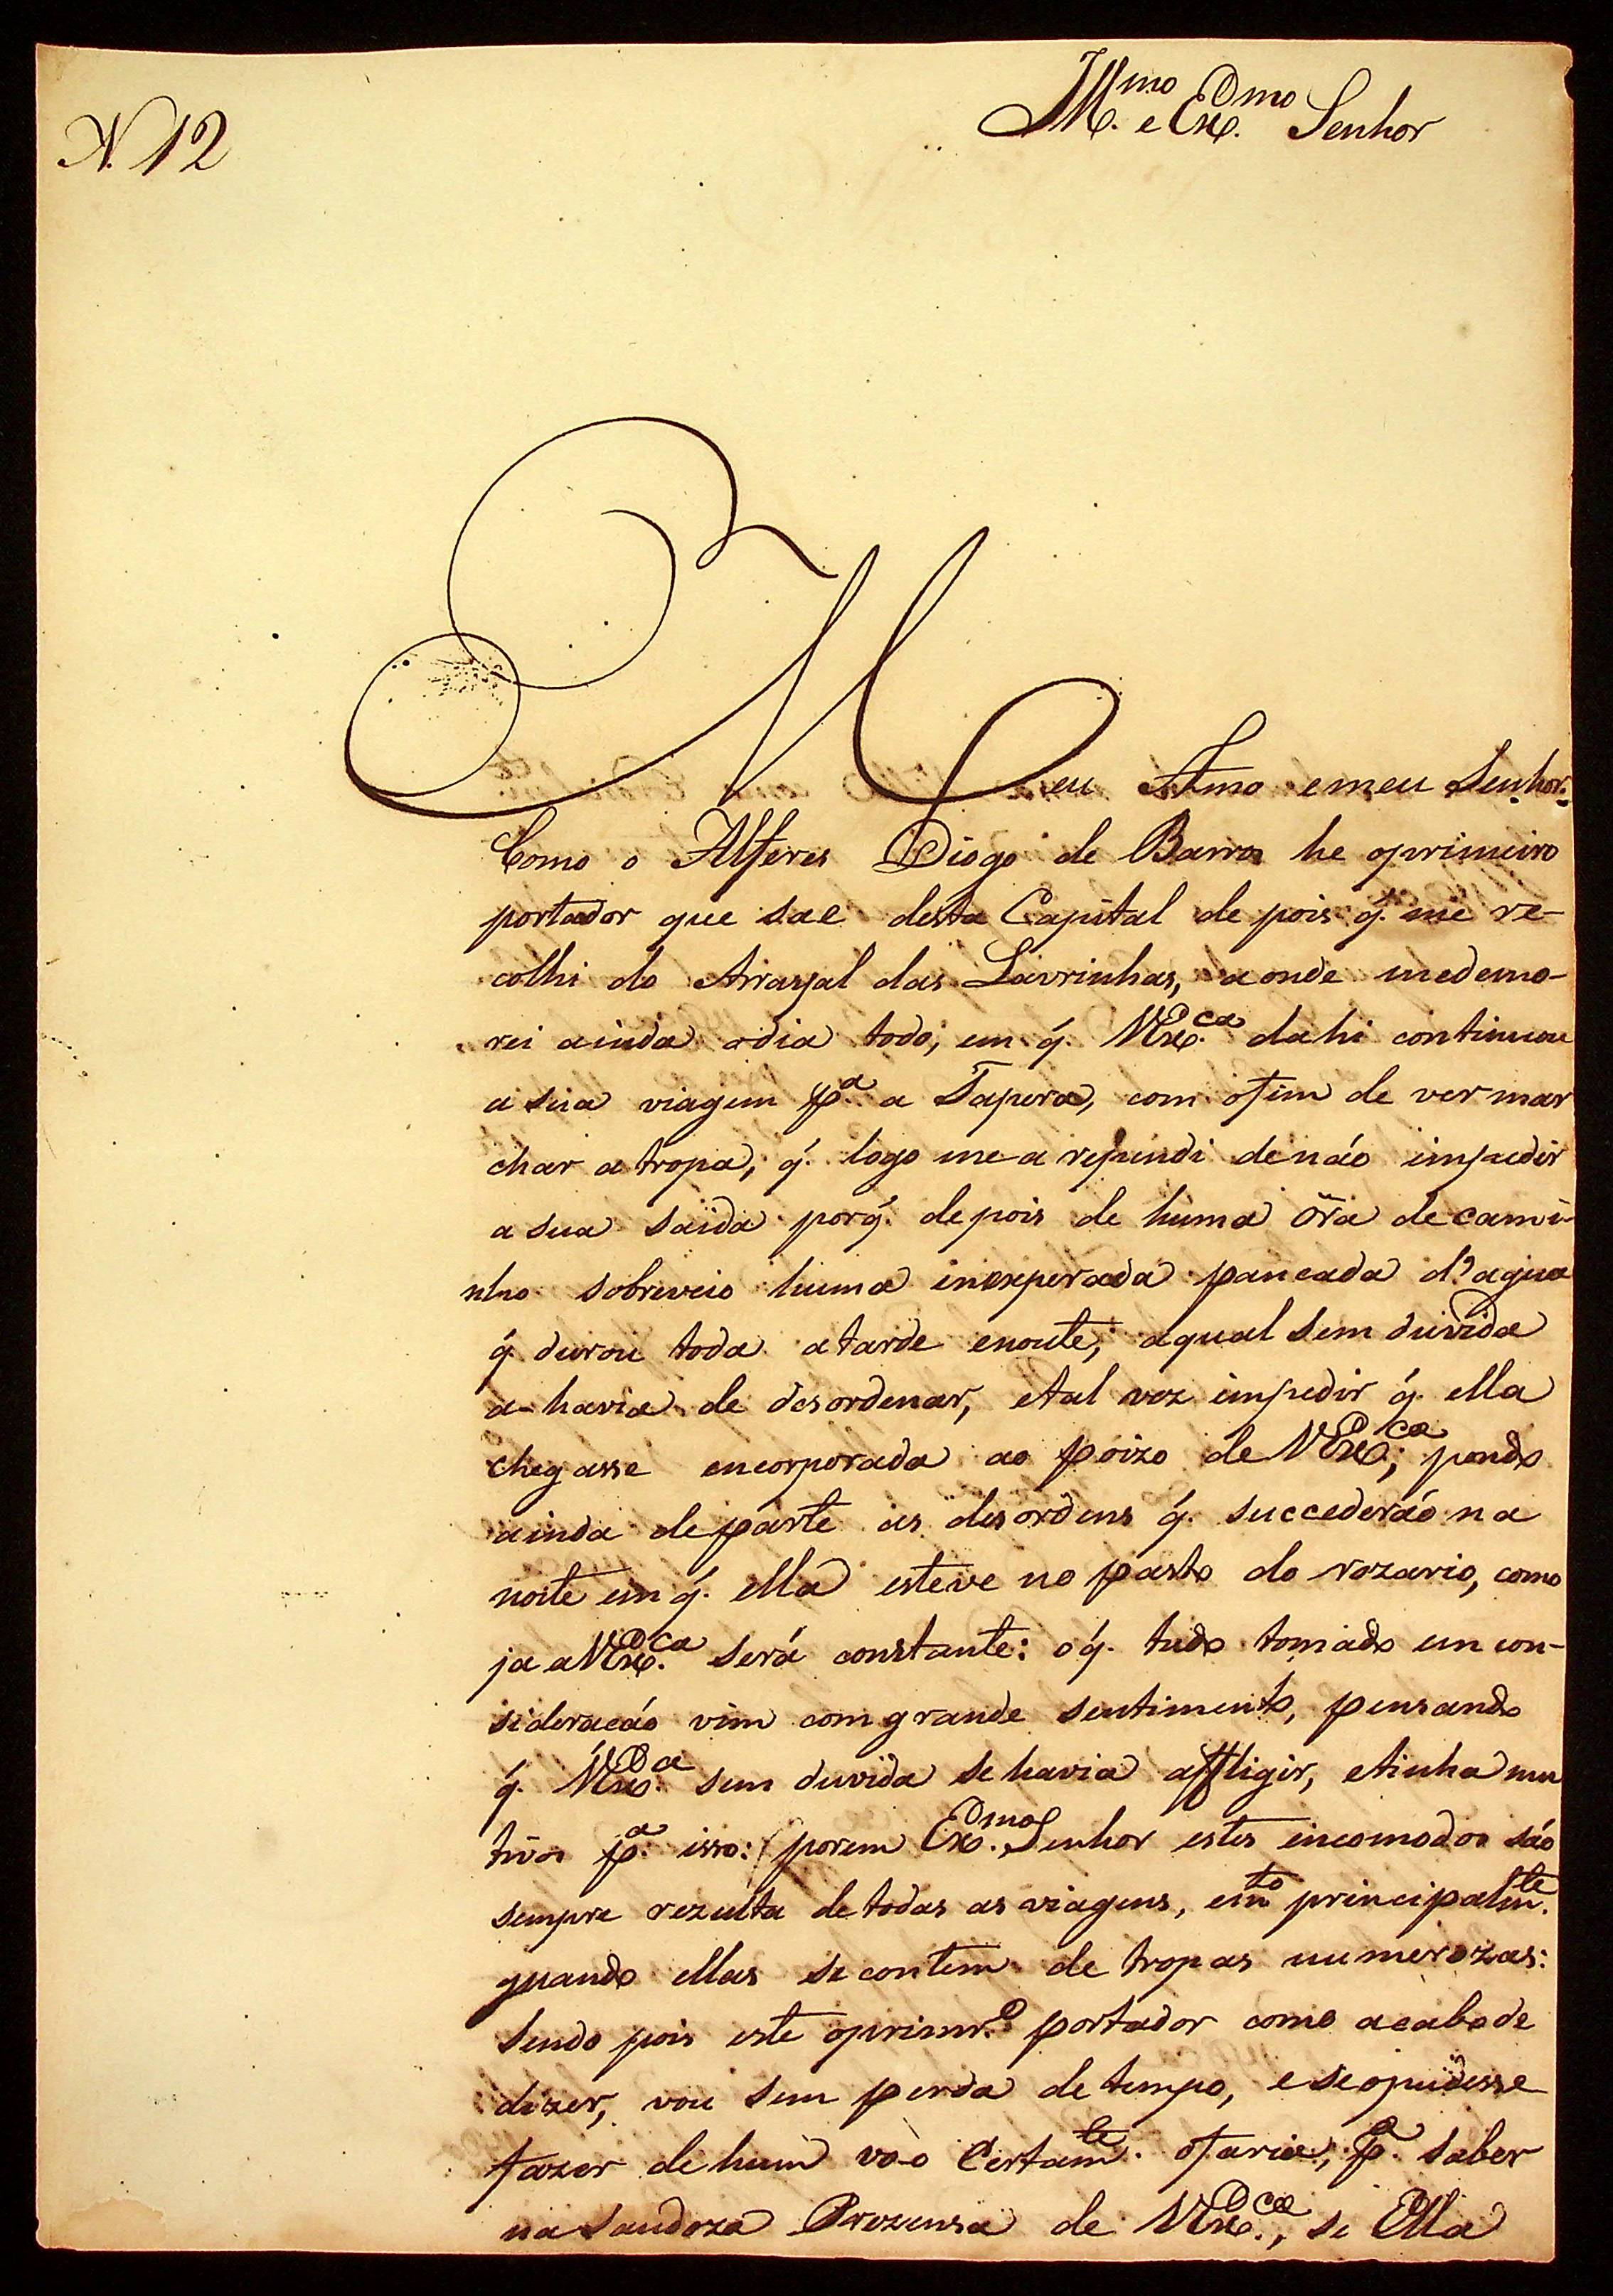 N. 12
Ill.mo e Ex.mo Senhor
Meu Amo emeu Senhor.
Como o Alferes Diogo de Barros he oprimeiro
portador que sae desta Capital de pois q. me re-
colhi do Arrayal das Lavrinhas, aonde medemo-
rei ainda odia todo, em q. VEx.ca dahi continuou
a sua viagem p.a a Tapera, com ofim de ver mar
char a tropa, q. logo me a rependi denáo impedir
a sua saida porq. depois de huma ora decami-
nho sobreveio huma inexperada pancada d'agua
q durou toda atarde enoute, aqual sem duvida
a-havia de desordenar, etal vez impedir q. ella
chegasse encorporada ao poizo de VEx.ca; pondo
ainda departe as desordens q. succederáo na
noite em q. ella esteve no pasto do rozario, como
ja aVEx.ca será constante: oq. tudo tomado em con-
sideracáo vim com grande sentimento, pensando
q. VEx.a sem duvida se havia affligir, etinha mu
tivos p.a isso: porem Ex.mo Senhor estes incomodos sáo
sempre rezulta detodas as viagens, em.to principalm.te
quando ellas se contem de tropas numerozas:
Sendo pois este oprimr.o portador como acabode
dizer, vou sem perda detempo, e seopudesse
fazer dehum vo-o Certam.te ofaria, p.a saber
na saudoza Prezensa de VEx.ca, se Ella